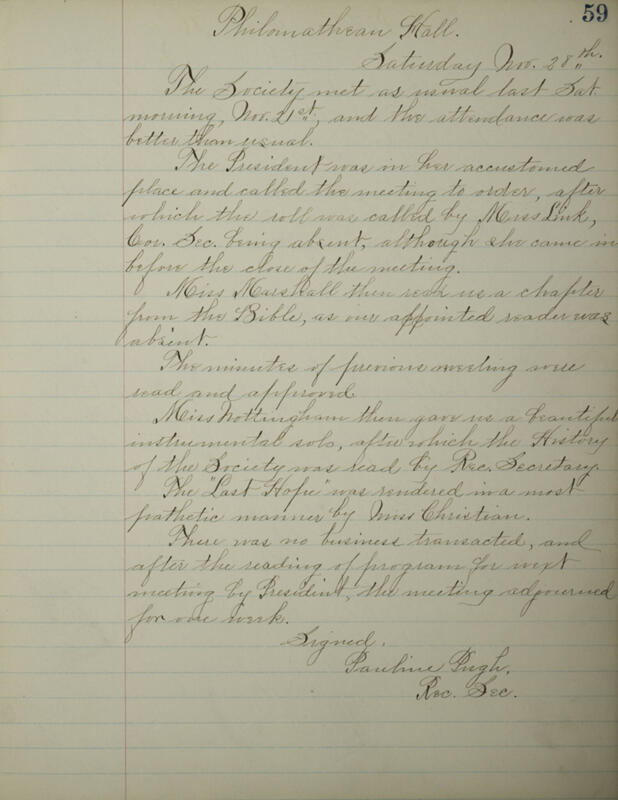 59
Philomathean Hall.
Saturday Nov. 28th.
The Society met as usual last Sat.
morning, Nov. 21st, and the attendance was
better than usual.
The President was in her accustomed
place and called the meeting to order, after
which the roll was called by Miss Link,
Cor. Sec. being absent, although she came in
before the close of the meeting.
Miss Marshall then read us a chapter
from the Bible, as our appointed reader was
absent.
The minutes of previous meeting were
read and approved.
Miss Nottingham then gave us a beautiful
instrumental solo, after which the History
of the Society was read by Rec. Secretary.
The "Last Hope" was rendered in a most
pathetic manner by Miss Christian.
There was no business transacted, and
after the reading of program for next
meeting by President, the meeting adjourned
for one week.
Signed.
Pauline Pugh,
Rec. Sec.